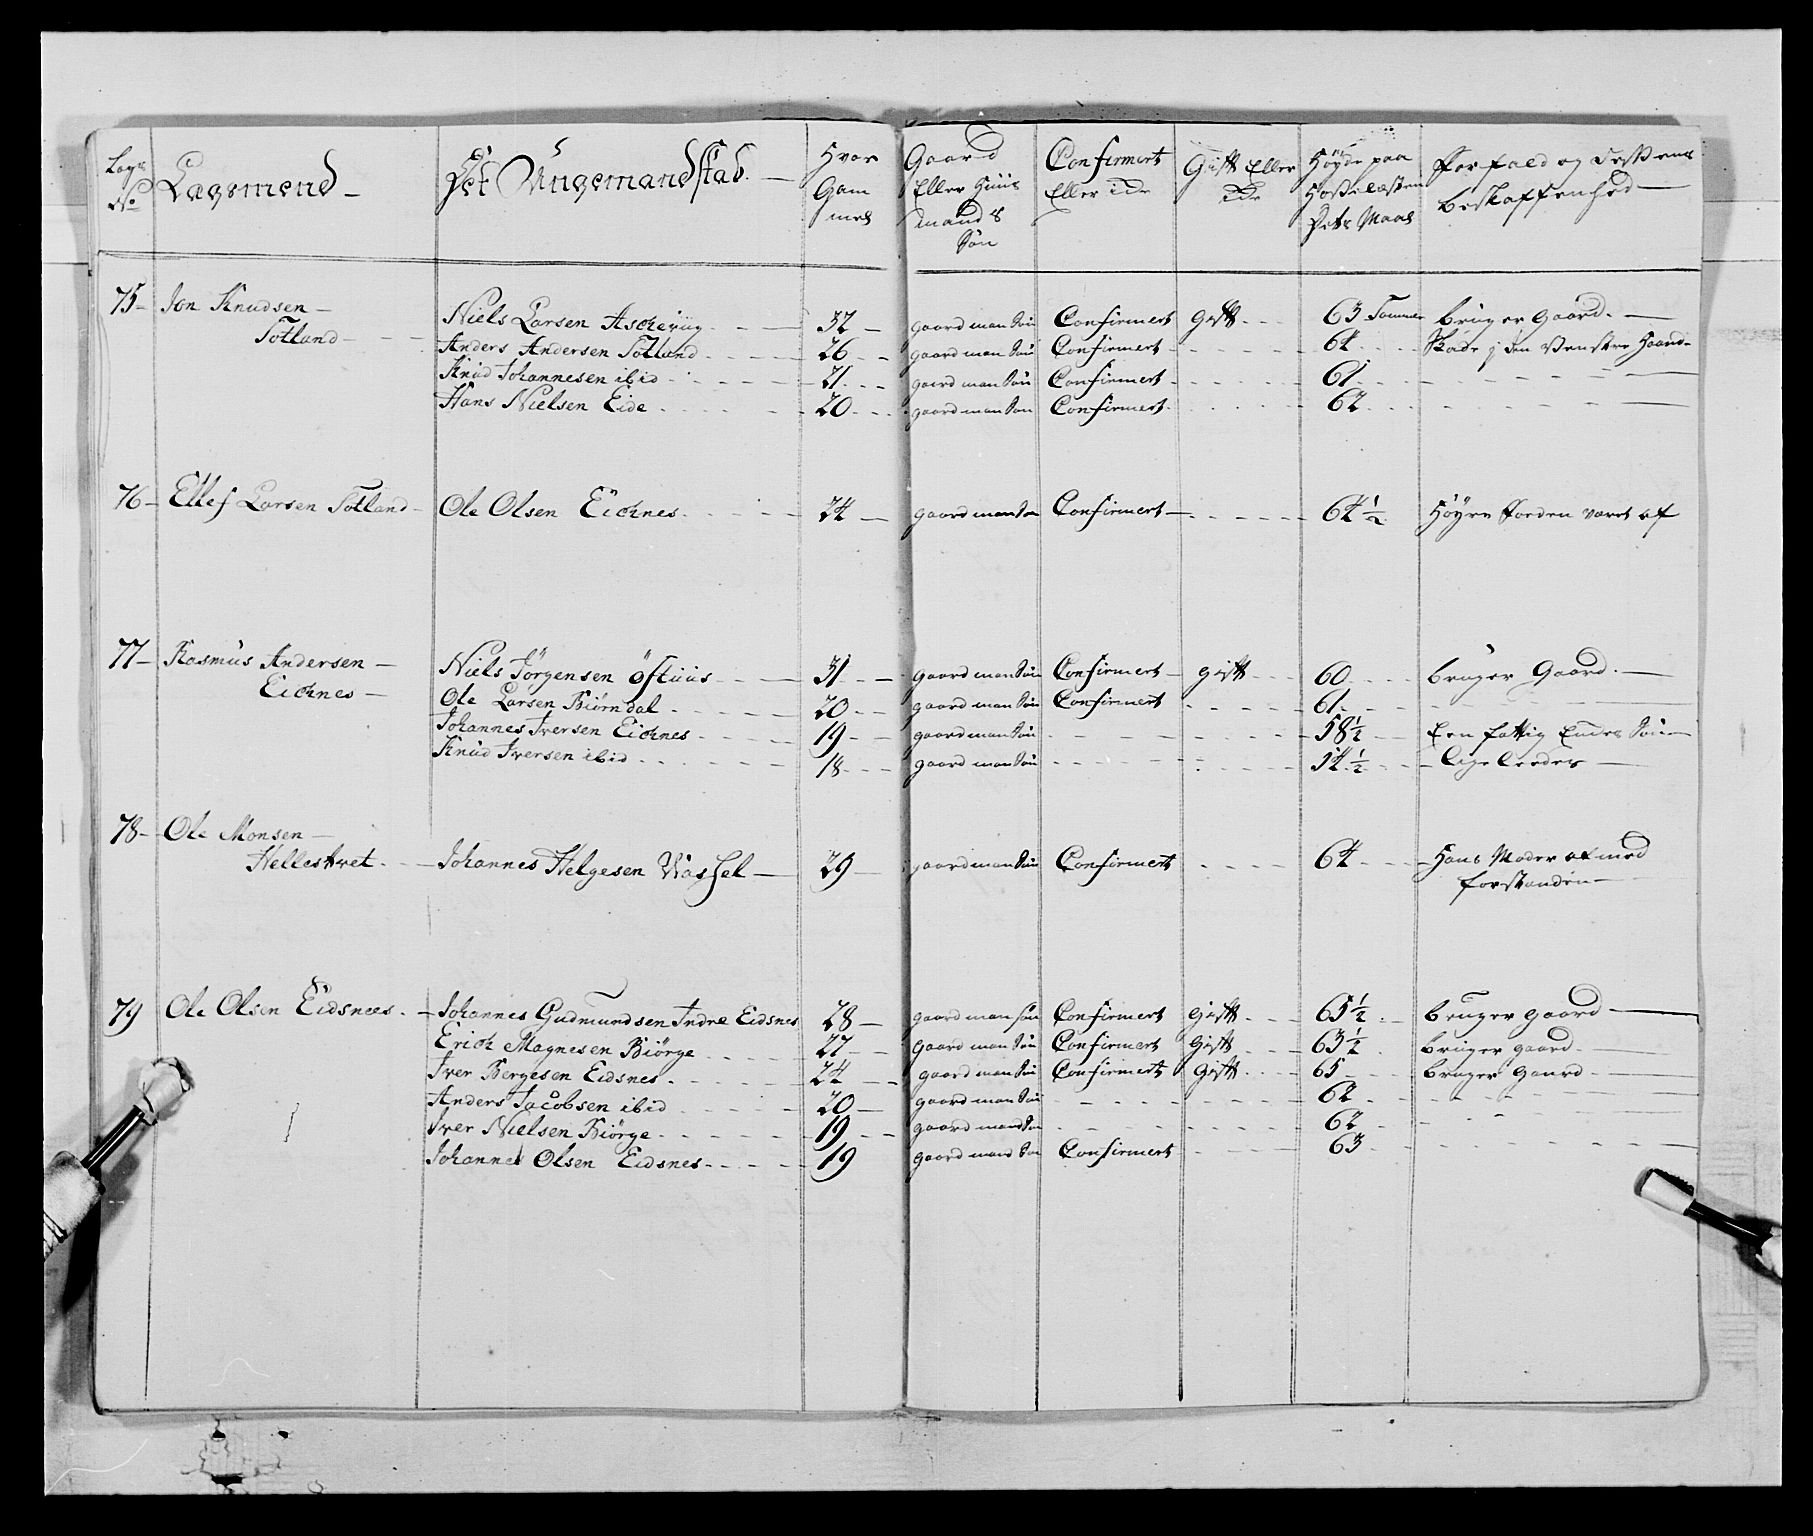 Legs No Lægsmend - Det Ungemandskab. - Hvor Gam mel Gaard Eller Huus mands Søn Confirmert Eller icke Gift Eller Icke Høyde paa Hosesocker Forfald og dessens beskaffenhed -
75 - Jon Knudsen - Niels Larsen 32 - gaard man Søn Confirmert gift 63 Tommer bruger Gaard. -
Totland - Anders Andersen Totland 26 gaard man Søn Confirmert 64 Skade j den Venstre Haand -
Knud Johannesen ibid 21 gaard man Søn Confirmert 61
Hans Nielsen Eide 20 gaard man Søn Confirmert 62
76 - Ellef Larsen Totland - Ole Olsen Eichnes 24 - gaard man Søn Confirmert - 64 1/2 Høyre været af
77 - Rasmus Andersen - Niels Jørgensen Øftuus 31 - gaard man Søn Confirmert - gift 60 bruger Gaard. -
Eichnes - Ole Larsen Biørndal 20 gaard man Søn Confirmert 61
Johannes Iversen Eichnes 19 gaard man Søn 58 1/2 Een fattig Enckes Søn -
Knud Iversen ibid 18 gaard man Søn 54 1/2 Lige leedes -
78 - Ole Monsen -
Hellestvet - Johannes Helgesen Vassel - 29 - gaard man Søn Confirmert 64 Hans Moder af med
forstanden -
79 Ole Olsen Eidsnees - Johannes Gudmundsen Indre Eidsnes 28 - gaard man søn Confirmert gift 65 1/2 bruger gaard -
Erich Magnesen Biørge 27 gaard man Søn Confirmert gift 63 1/2 bruger gaard -
Iver Bergesen Eidsnes 24 gaard man Søn Confirmert gift 65 bruger gaard -
Anders Jacobsen ibid 20 - gaard man Søn 62
Iver Nielsen Biørge 19 gaard mand Søn 62
Johannes Olsen Eidsnes 19 gaard mand Søn Confirmert 63